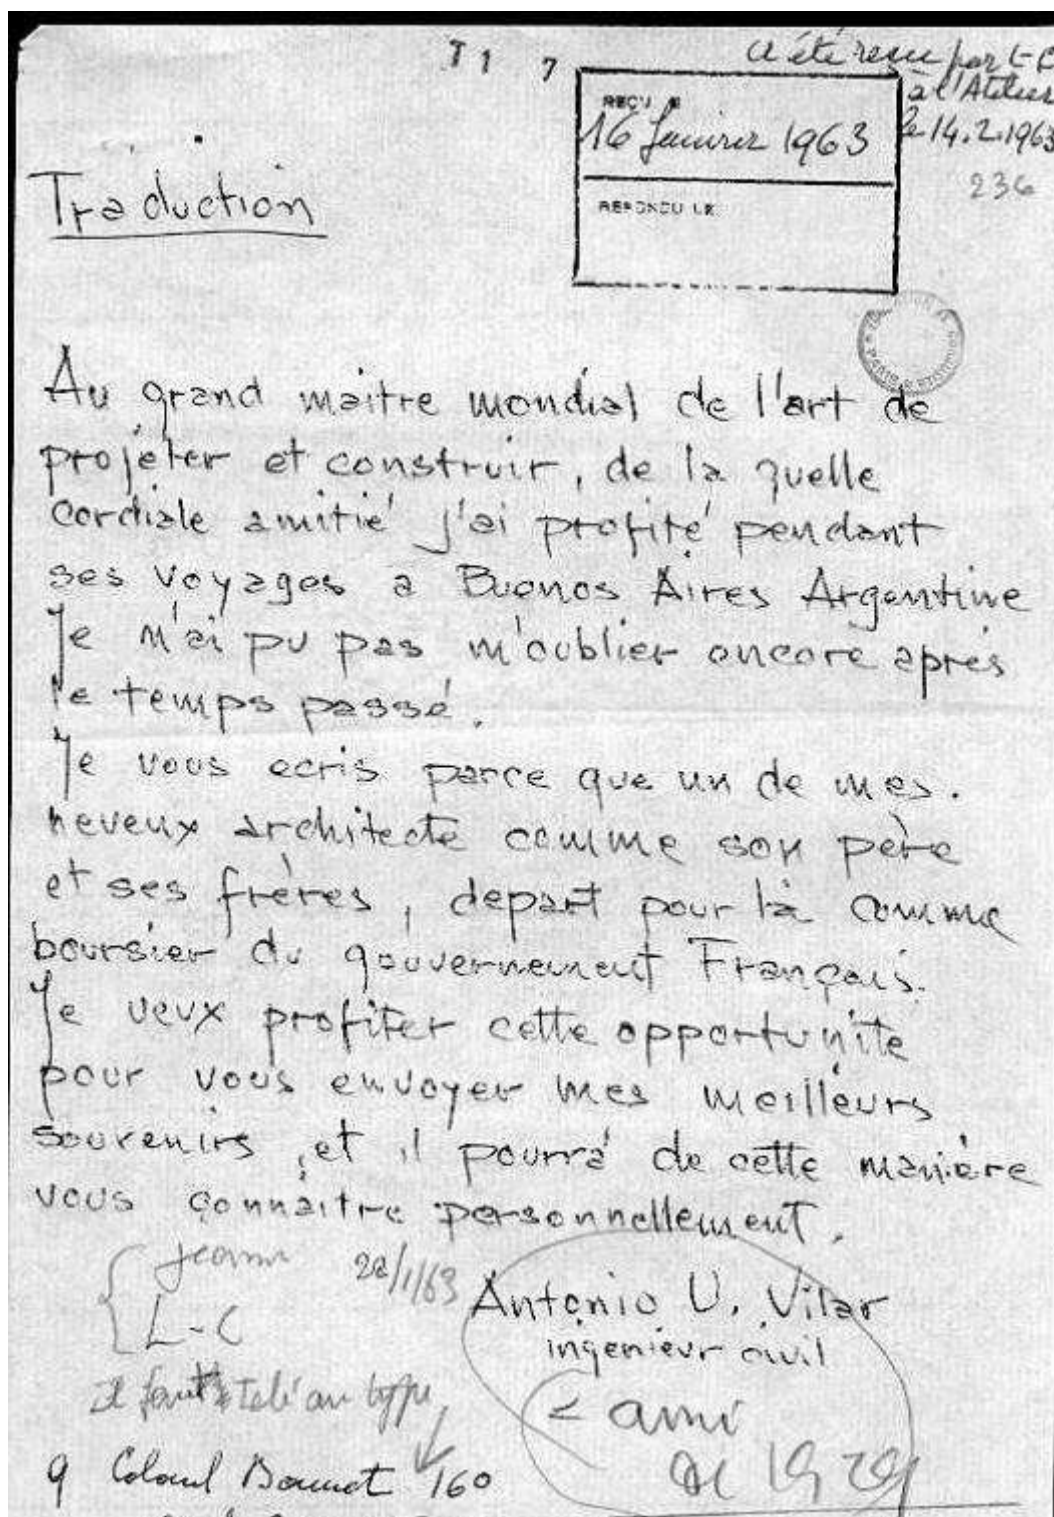 T1 7
a été reçu par L-C
à l'Atelier
le 14.2.1963
236
REÇU LE
16 Janvier 1963
REPONDU LE
Traduction
Au grand maitre mondial de l'art de
projeter et construir, de la quelle
cordiale amitié j'ai profité pendant
ses voyages a Buenos Aires Argentine
Je n'ai pu pas m'oublier encore après
le temps passé.
Je vous ecris parce que un de mes.
neveux architecte comme son père
et ses frères, depart pour là comme
boursier du gouvernement Français.
Je veux profiter cette opportunité
pour vous envoyer mes meilleurs
souvenirs, et il pourrá de cette manière
vous connaitre personnellement.
28/1/63
L-C
Antonio U. Vilar
ingenieur civil
Il faut télé au type
= ami
de 1929
9 Colonel Bonnet 160